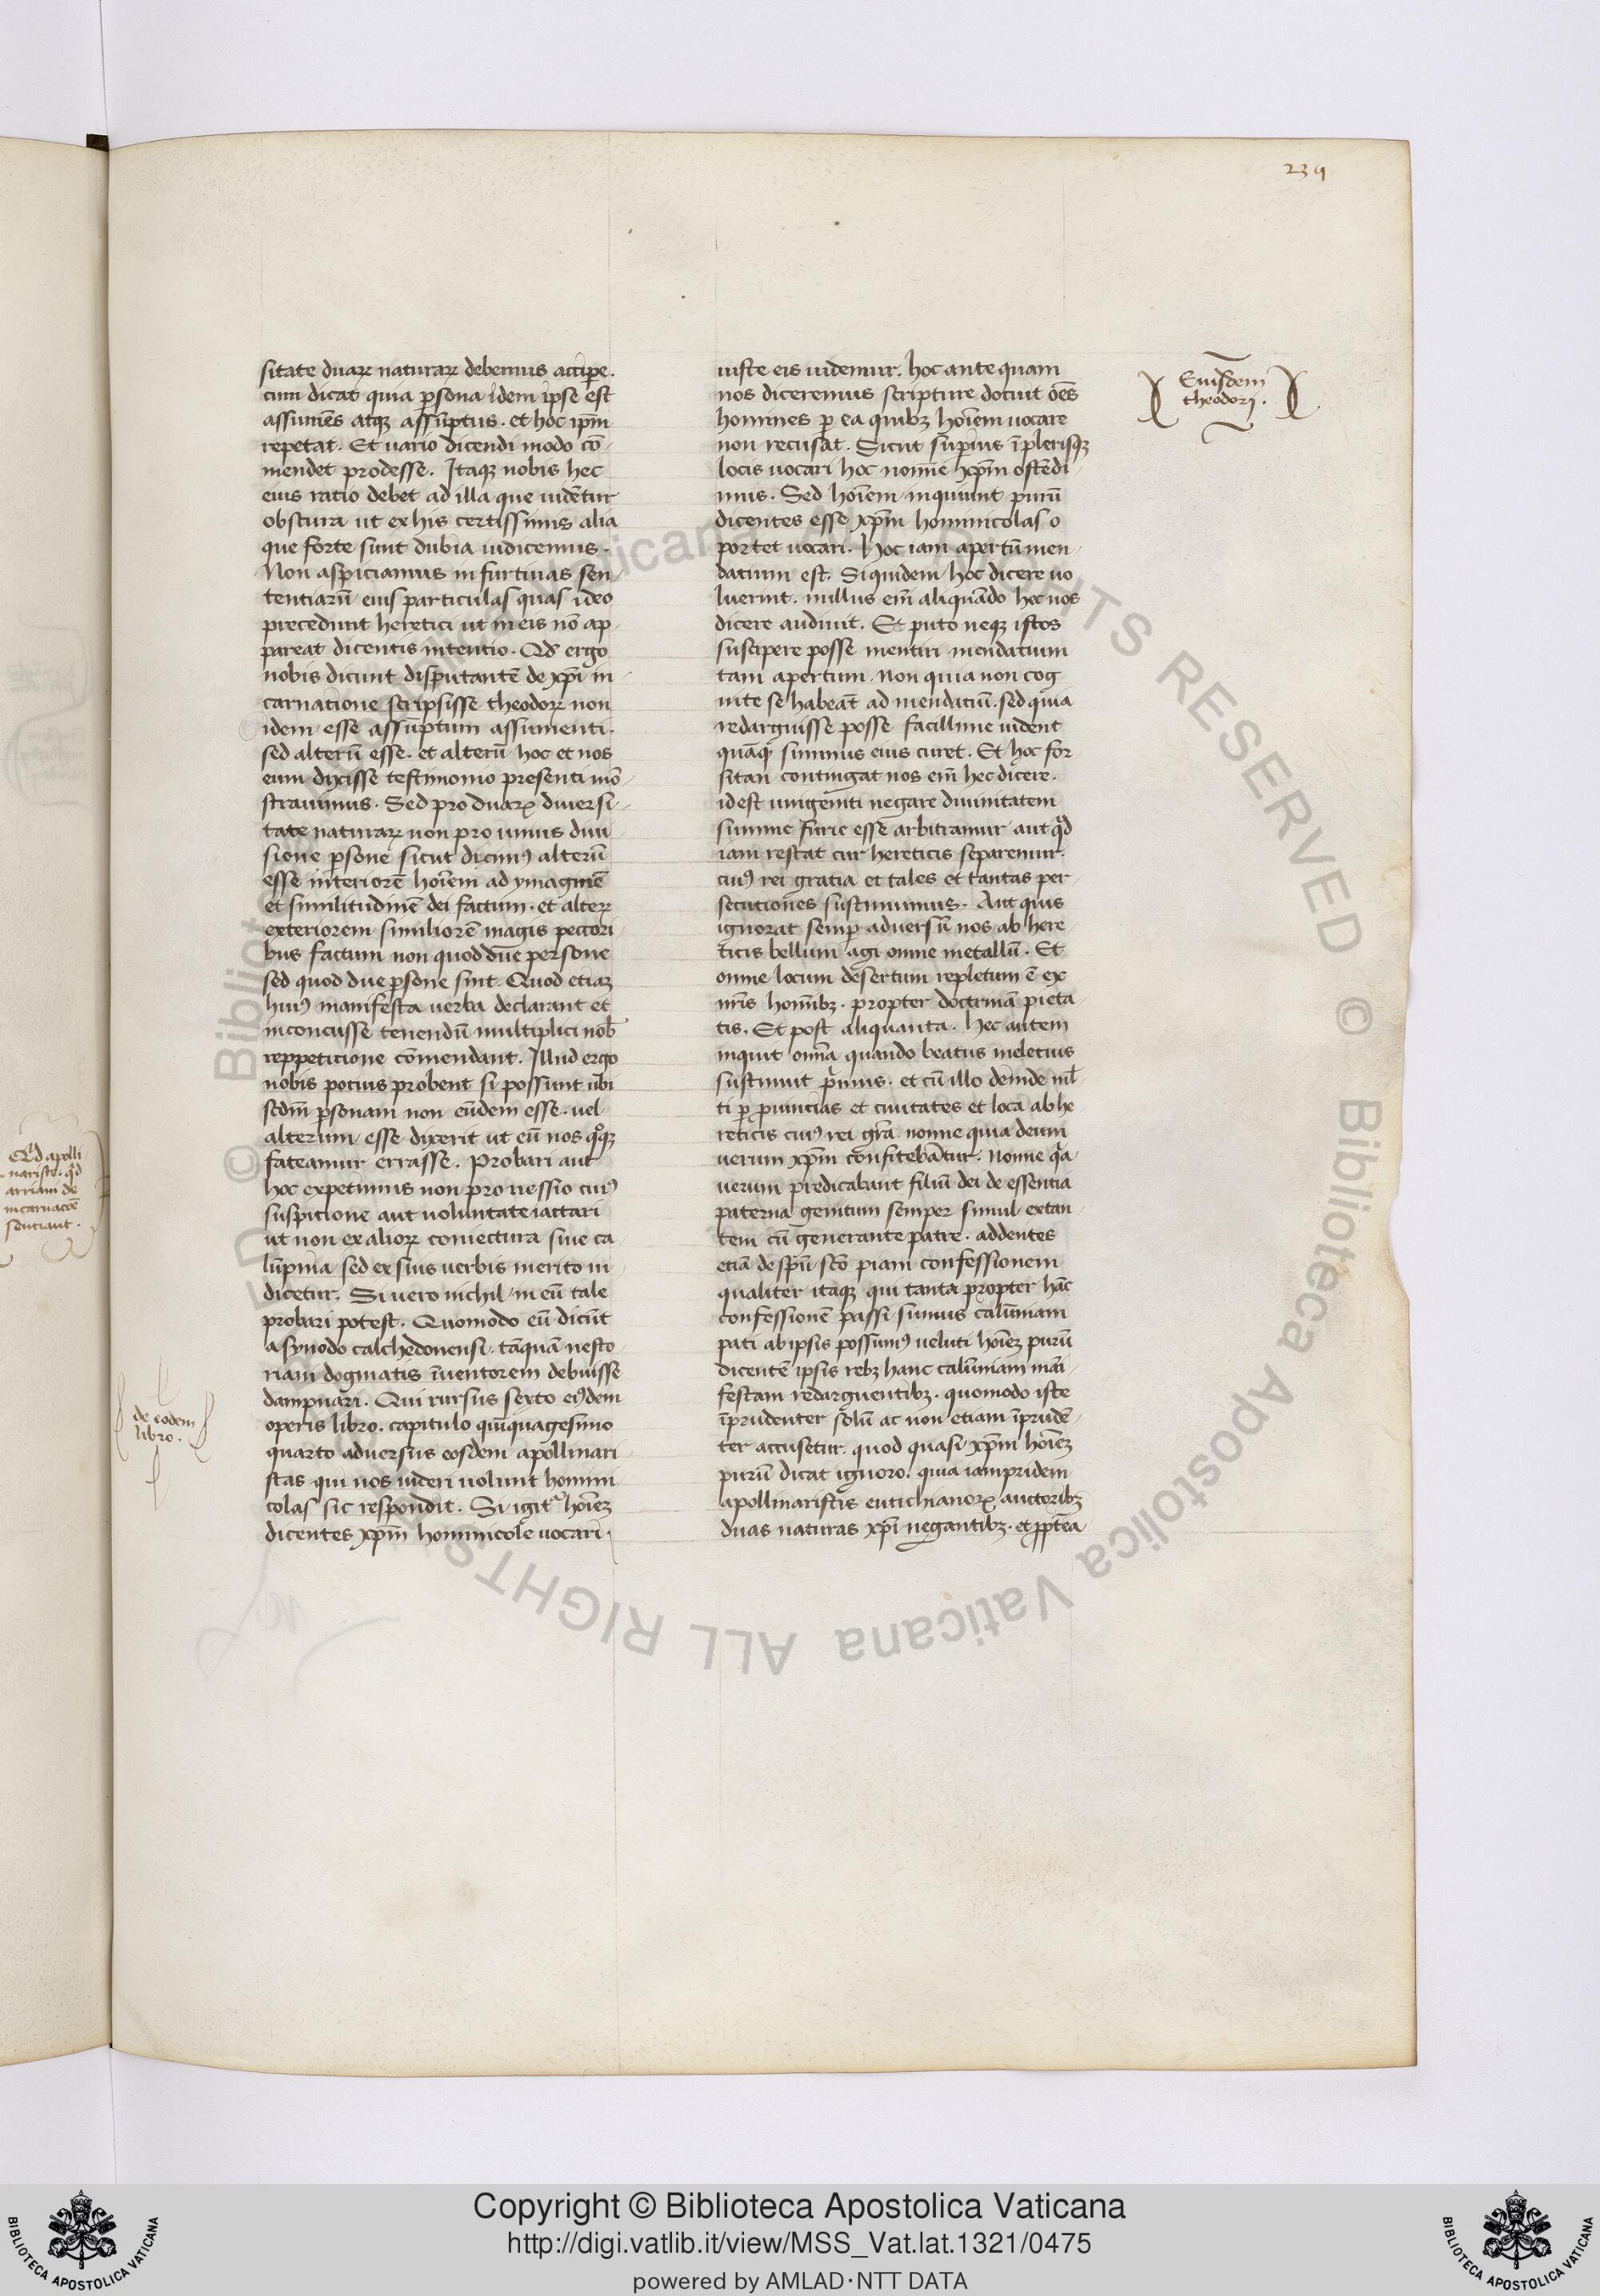 239
sitate duaꝝ naturaꝝ debemus accipe.
cum dicat quia ꝑsona idem ipse est
assumēs atqꝫ assūptus. et hoc ipm̄
repetat. Et uario dicendi modo cō-
mendet prodesse. Itaqꝫ nobis hec
eius ratio debet ad illa que uidētur
obscura ut ex his certissimis alia
que forte sunt dubia iudicemus.
Non aspiciamus in furtiuas sen-
tentiarū eius particulas quas ideo
precedunt heretici ut in eis nō ap-
pareat dicentis intentio. Qd̄ ergo
nobis dicunt disputantē de xp̄i in-
carnatione scripsisse theodoꝝ non
idem esse assūptum assumenti.
sed alterū esse. et alterū hoc et nos
eum dixisse testimonio presenti mō-
strauimus. Sed pro duaꝝ diuersi-
tate naturaꝝ non pro unius diui
sione ꝑsone sicut dicimꝰ alterū
esse interiorē hoīem ad ymaginē
et similitudinē dei factum. et alteꝝ
exteriorem similiorē magis peccori-
bus factum non quod due persone
sed quod due ꝑsone sint. Quod etiaꝫ
huiꝰ manifesta uerba declarant et
inconcusse tenendū multiplici nob̄
reppeticione cōmendant. Illud ergo
nobis pocius probent si possunt ubi
scdm̄ ꝑsonam non eūdem esse. uel
alterum esse dixerit ut eū nos qͦqꝫ
fateamur errasse. Probari aut̄
hoc expetimus non pro nessio cuiꝰ
suspicione aut uoluntate iactari
ut non ex alioꝝ coniectura siue ca
lūpnia sed ex suis uerbis merito iu
dicetur. Si uero nichil in eū tale
probari potest. Quomodo eū dicūt
a synodo calchedonensi. tāquā nesto
riani dogmatis īuentorem debuisse
dampnari. Qui rursus sexto eiꝰdem
operis libro. capitulo quīquagesimo
quarto aduersus eosdem apollinari
stas qui nos uideri uolunt homini
colas sic respondit. Si igit᷑ hoīeꝫ
dicentes xp̄m hominicole uocari.
iuste eis uidemur. hoc ante quam
nos diceremus scripture docuit ōēs
homines ꝑ ea quibꝫ hoīem uocare
non recusat. Sicut suꝑius ī plerisqꝫ
locis uocari hoc nomīe xp̄m ostēdi
mus. Sed hoīem inquiunt purū
dicentes esse xp̄m hominicolas o
portet uocari. Hoc iam apertū men-
dacium est. Siquidem hoc dicere uo
luerint. nullus em̄ aliquādo hec nos
dicere audiuit. Et puto neqꝫ istos
suscipere posse mentiri mendacium
tam apertum. non quia non cog
nite se habeāt ad mendaciū. sed quia
redarguisse posse facillime uident
quāqͣ simmus eius curet. Et hoc for
sitan contingat nos em̄ hec dicere.
id est unigeniti negare diuinitatem
summe furie esse arbitramur aut qͥd
iam restat cur hereticis separemur.
cuiꝰ rei gratia et tales et tantas per-
secutiones sustinuimus. Aut quis
ignorat semꝑ aduersū nos ab here
ticis bellum agi omne metallū. Et
omne locum desertum repletum ē ex
nr̄is homībꝫ. propter doctrinā pieta-
tis. Et post aliquanta. Hec autem
inquit omīa quando beatus meletius
sustinuit pͥmus. et cū illo deinde ml̄
ti ꝑ ꝓuincias et ciuitates et loca ab he
reticis cuiꝰ rei gr̄a. nonne quia deum
uerum xp̄m cōfitebātur. Nonne qͥa
uerum predicabant filiū dei de essentia
paterna genitum semper simul extan-
tem cū generante patre. addentes
etiā de spū scō piam confessionem
qualiter itaqꝫ qui tanta propter hāc
confessionē passi sumus calūniam
pati ab ipsis possumꝰ ueluti hoīeꝫ purū
dicentē ipsis rebꝫ hanc calūniam māi-
festam redarguentibꝫ. quomodo iste
īprudenter solū ac non etiam īprudē-
ter accusetur. quod quasi xp̄m hoīeꝫ
purū dicat ignoro. quia iampridem
apollinaristis eutichianoꝝ auctoribꝫ
duas naturas xp̄i negantibꝫ. et ꝓpt̄ea
Eiusdem
theodorj.
Qd̄ apolli
nariste. qͥd
arriani de
incarnacōe
sentiant.
de eodem
libro.
Copyright © Biblioteca Apostolica Vaticana
http://digi.vatlib.it/view/MSS_Vat.lat.1321/0475
powered by AMLAD·NTT DATA
BIBLIOTECA APOSTOLICA VATICANA
BIBLIOTECA APOSTOLICA VATICANA
© Biblioteca Apostolica Vaticana ALL RIGHTS RESERVED © Biblioteca Apostolica Vaticana ALL RIGHTS RESERVED